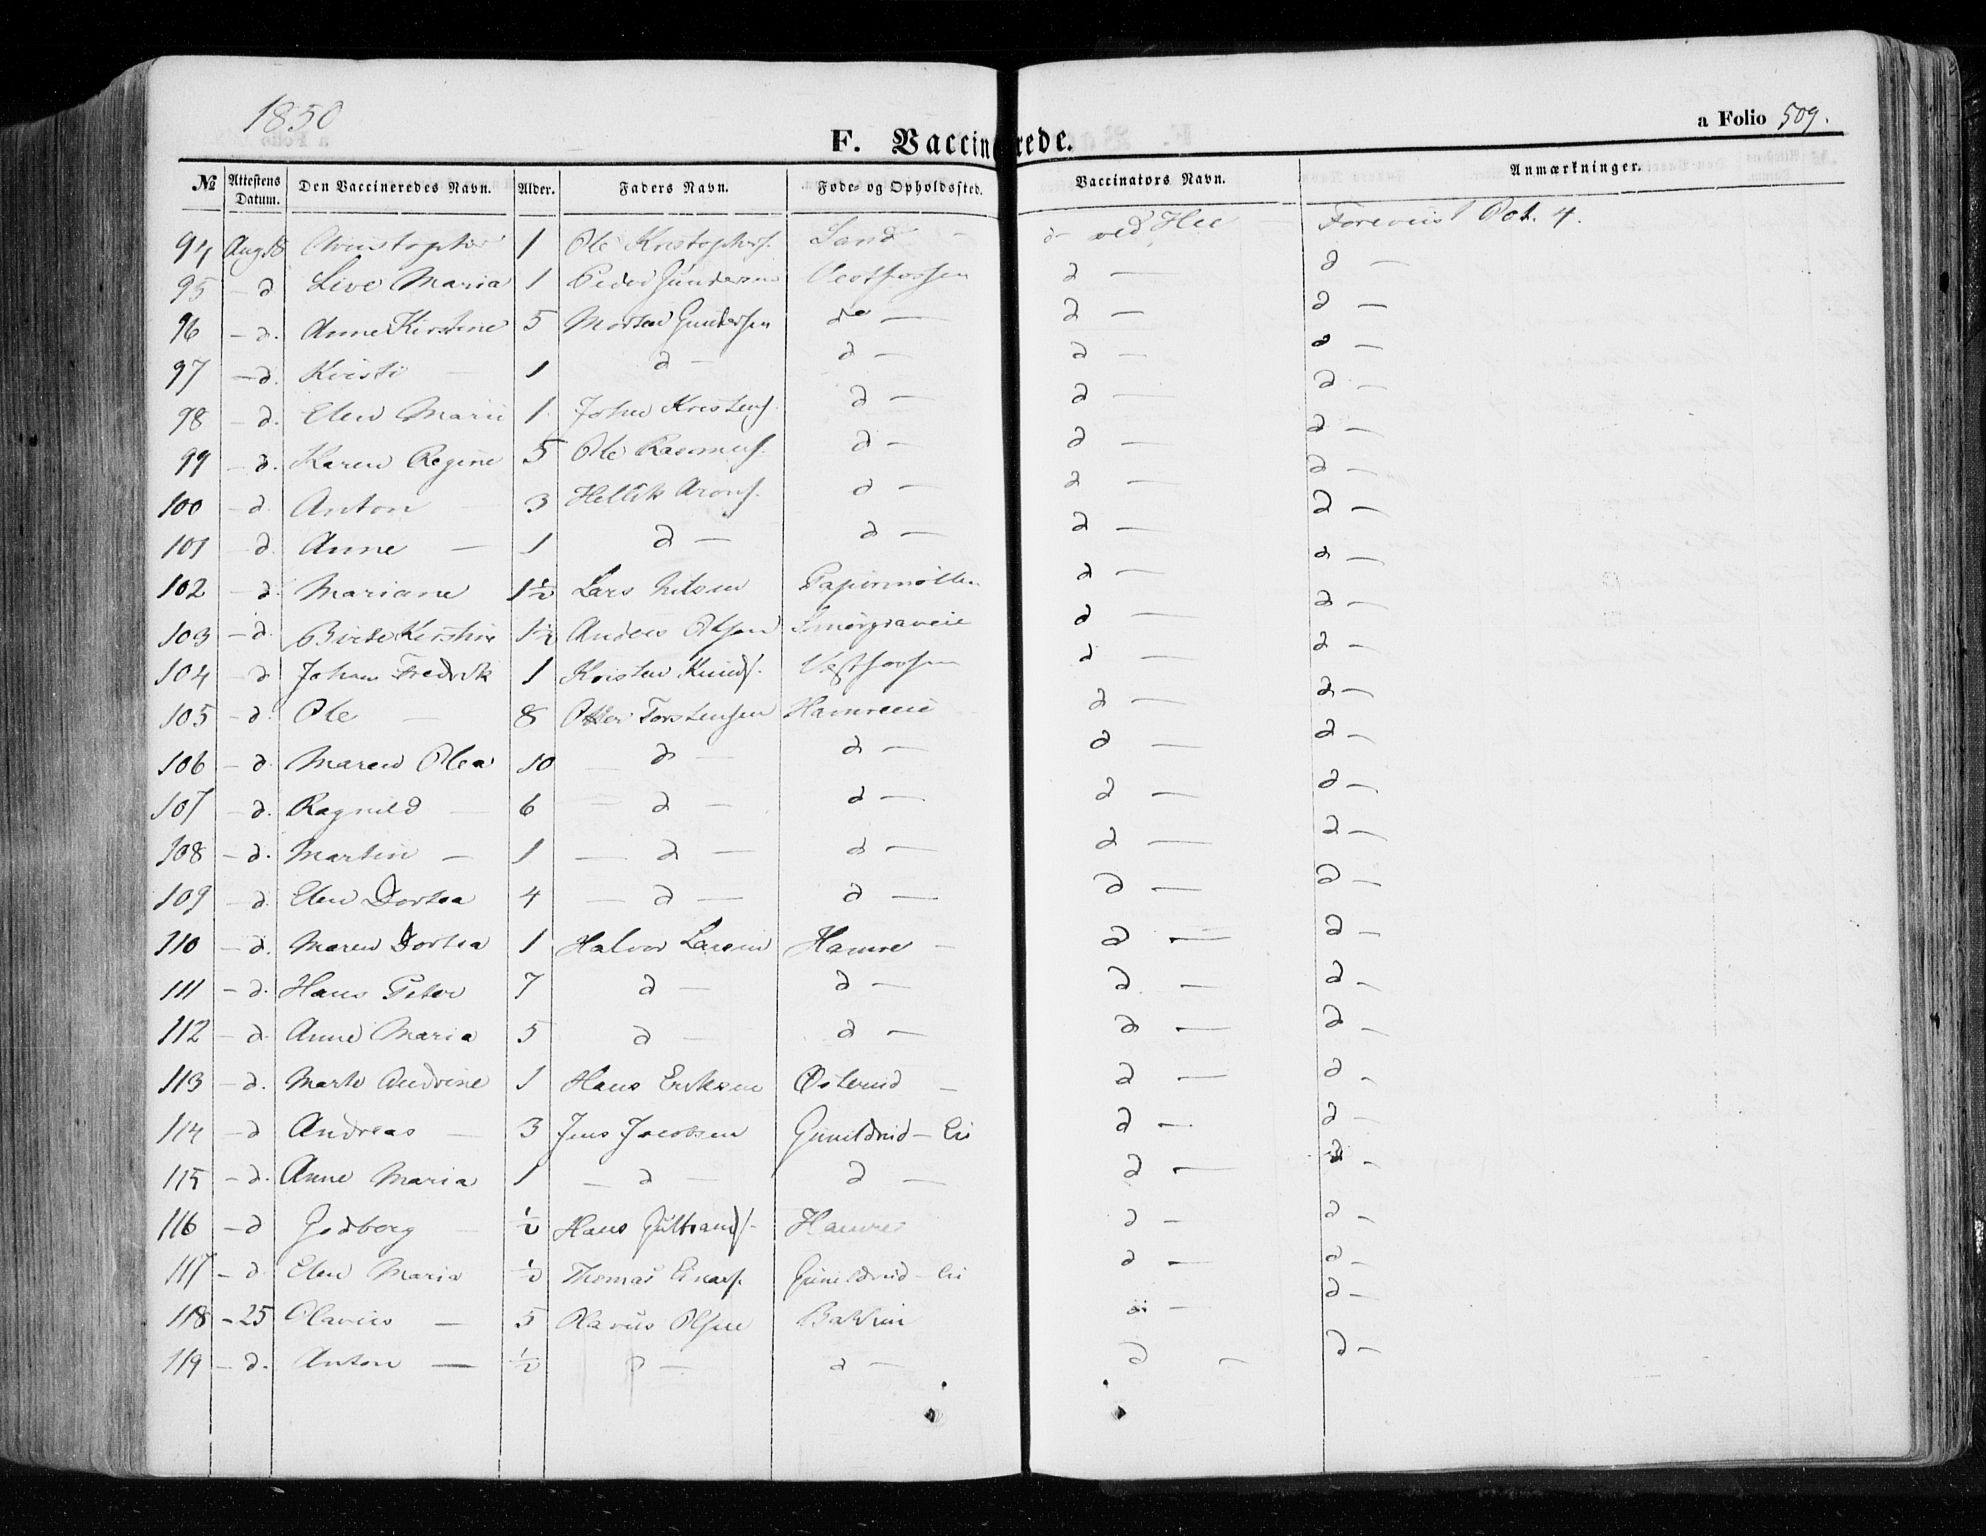 1850
F. Vaccinerede.
a Folio 509.
№ Attestens Datum. Den Vaccineredes Navn. Alder. Faders Navn. Føde- og Opholdssted. Vaccinators Navn. Anmærkninger.
94 Aug 18 Christopher 1 Ole Kristophers. Sand d ved Hee Foreviist Pct. 4.
95 - d Live Maria 1 Peder Gundersen Vestfossen d — d —
96 - d. Anne Kirstine 5 Morten Gundersen do — d — d —
97 - d. Kristi — 1 d — d — d — d —
98 - d. Elen Marie 1. Johan Kristens. d — d — d —
99 - d. Karen Regine 5 Ole Rasmus. d — d — d —
100 - d. Anton 3 Hellik Arons. d — d — d —
101 - d. Anne — 1 d — d — d — d —
102 - d. Mariane 1½ Lars Nilsen Papirmøllen d — d —
103 - d. Birte Kirstine 1½ Anders Olsen Smørgraveie d — d —
104 - d Johan Fredrik 1 Kristen Knuds. Vestfossen d — d —
105 - d. Ole — 8 Torstensen Hamreeie d — d —
106 - d. Maren Olea 10 — d — d — d — d —
107 - d. Ragnild — 6 — d — d — d — d —
108 - d. Martin — 1 — d — d — d — d —
109 - d. Elen Dortea 4 — d — d — d — d —
110 - d. Maren Dortea 1 Halvor Larsen Hamre — d — d —
111 - d. Hans Peter 7 d — d — d. — d —
112 - d. Anne Maria 5 d — d — d — d —
113 - d. Marte Andrine 1 Hans Eriksen Østerud — d — d —
114 - d Andreas — 3 Jens Jacobsen Gunildrud - Ei d — d —
115 - d. Anne Maria 1 — d — d — d — d —
116 - d Godberg — ½ Hans Gulbrands. Hamre d — d —
117 - d Elen Maria ½ Thomas Einars. Gunildrud - Ei d — d —
118 - 25 Olavus — 5 Olavus Olsen d —
119 - d. Anton — ½ d — d — d — d —